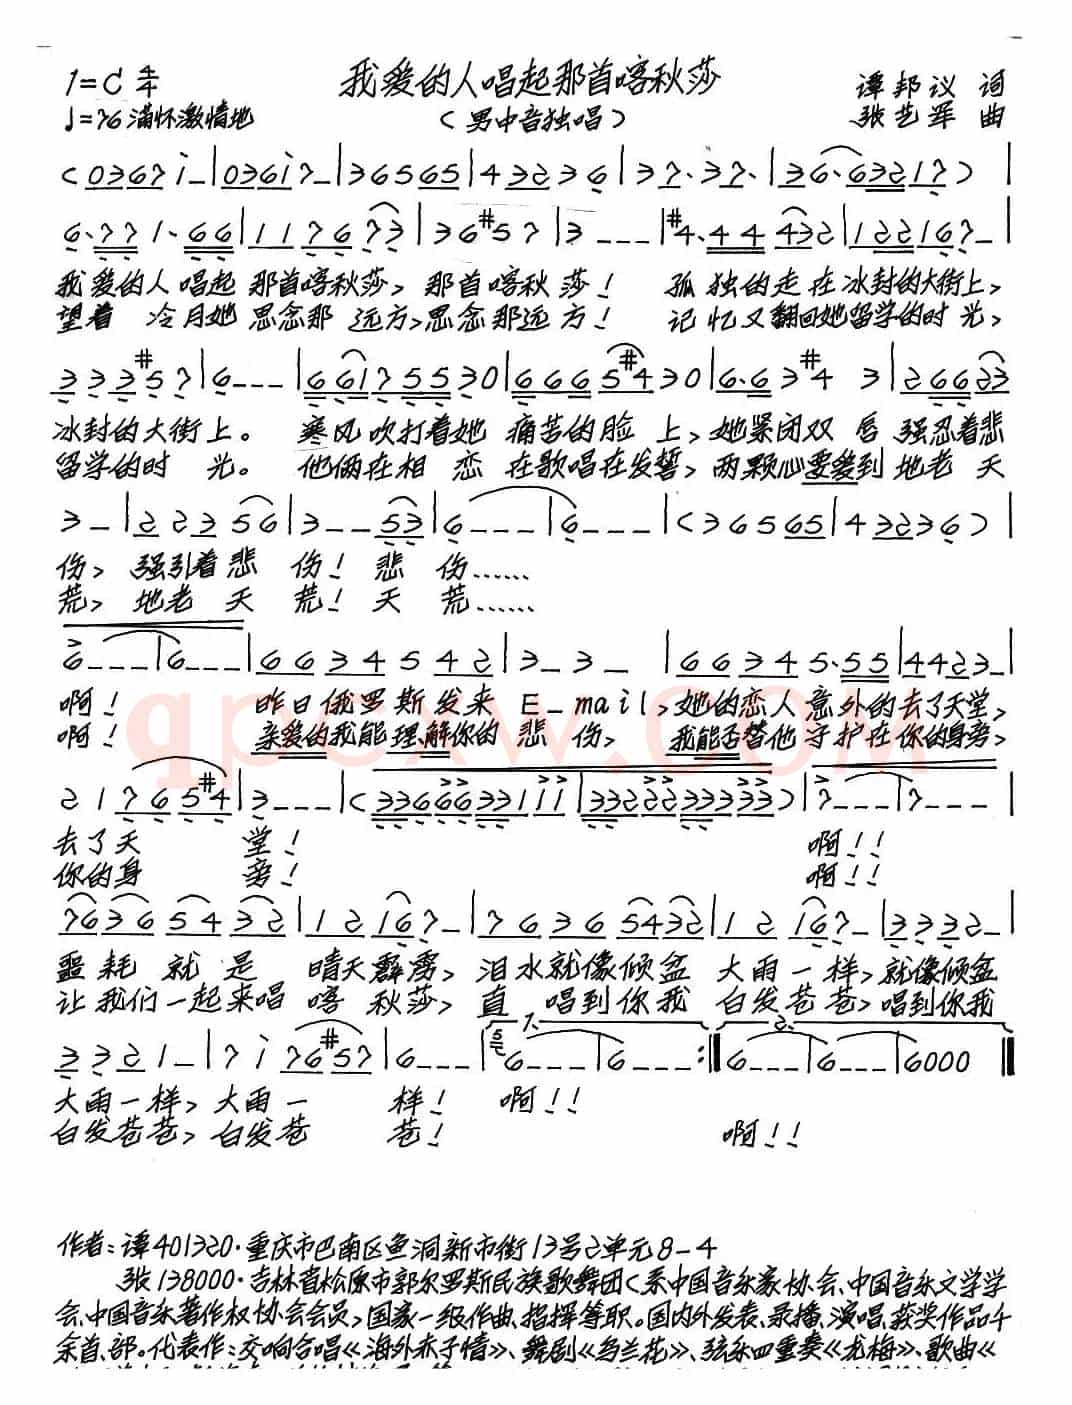 1=C 4/4 我爱的人唱起那首喀秋莎 谭邦议 词
♩=76 满怀激情地 (男中音独唱) 张艺军 曲
(0367 i_|036i7_|36565|43236|37·37·|36·63217)
6·771·66|117673|36#57|3___|#4·44432|122167_
我爱的人唱起 那首喀秋莎, 那首喀秋莎! 孤独的走在冰封的大街上,
望着 冷月她 思念那 远方,思念那远方! 记忆又翻回她留学的时光,
333#57|6___|66i75530|6665#430|6·63#43|26623
冰封的大街上。 寒风吹打着她 痛苦的脸 上,她紧闭双 唇 强忍着悲
留学的时 光。 他俩在相 恋 在歌唱在发誓,两颗心要爱到 地老 天
3_|22356|3__53|6___|6___|(36565|43236)
伤, 强引着悲 伤! 悲 伤……
荒, 地老 天 荒! 天 荒……
6___|6___|6634542|3_3_|66345·55|4423_
啊! 昨日俄罗斯发来 E_mail,她的恋人意外的去了天堂,
啊! 亲爱的我能理解你的 悲 伤, 我能否替他守护在你的身旁,
21765#4|3___|(3366633111|3322233333)|7___|7___
去了天 堂! 啊!!
你的身 旁! 啊!!
76365432|12167_|76365432|12167_|3332_
噩耗 就 是 晴天霹雳, 泪水就像倾盆 大雨一样,就像倾盆
让我们一起来唱 喀 秋莎, 直 唱到你我 白发苍苍,唱到你我
3321_|7i76#57|6___|1.6___|6___:|2.6___|6___|6000
大雨一样, 大雨一 样! 啊!!
白发苍苍, 白发苍 苍! 啊!!
作者:谭401320·重庆市巴南区鱼洞新市街13号2单元8-4
张138000·吉林省松原市郭尔罗斯民族歌舞团(系中国音乐家协会、中国音乐文学学
会、中国音乐著作权协会会员)国家一级作曲、指挥等职。国内外发表、录播、演唱、获奖作品千
余首、部。代表作:交响合唱《海外赤子情》、舞剧《乌兰花》、弦乐四重奏《龙梅》、歌曲《
qpcxw.com